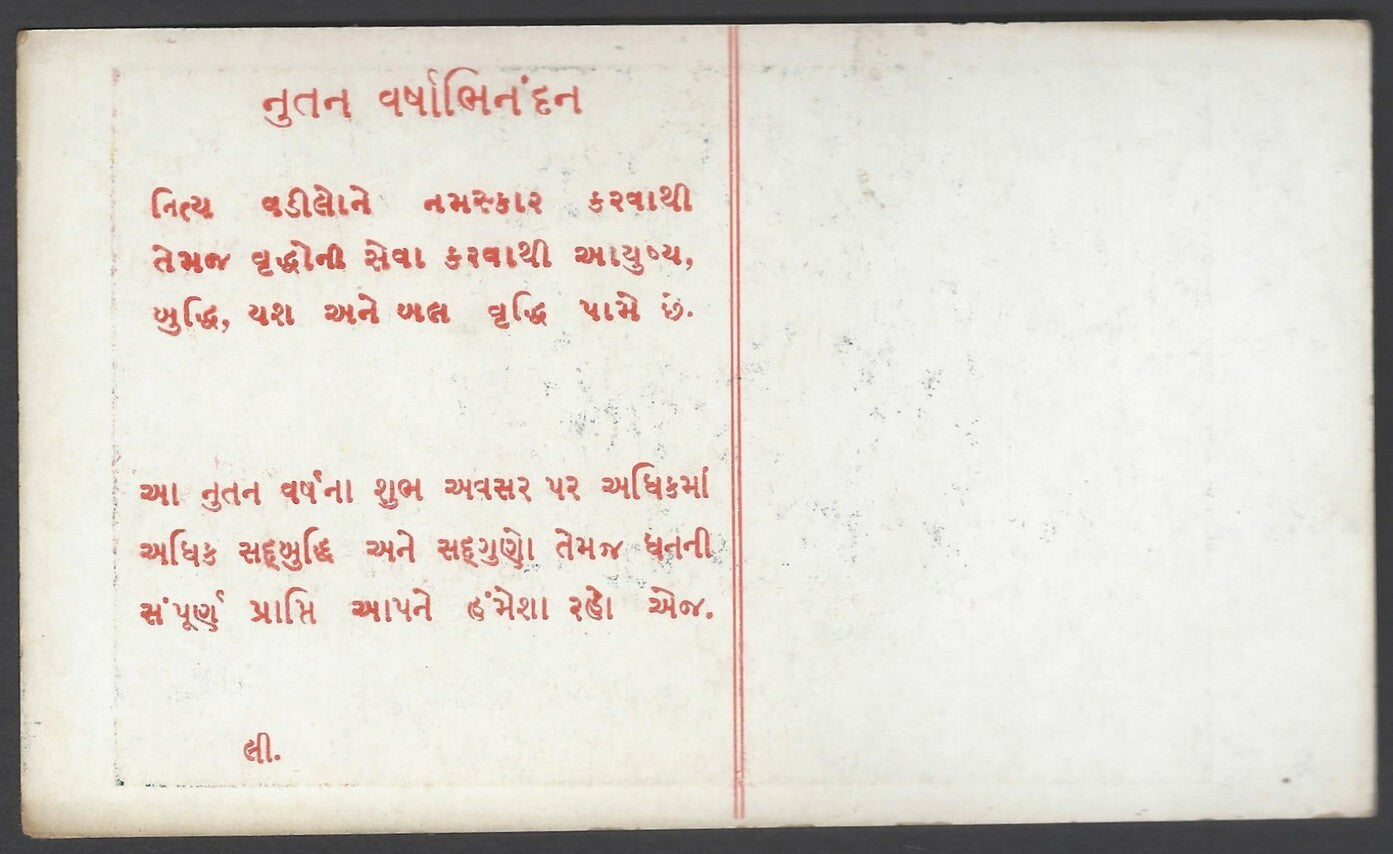 નુતન વર્ષાભિનંદન
નિત્ય વડીલોને નમસ્કાર કરવાથી
તેમજ વૃદ્ધોની સેવા કરવાથી આયુષ્ય,
બુદ્ધિ, યશ અને બલ વૃદ્ધિ પામે છે.
આ નુતન વર્ષના શુભ અવસર પર અધિકમાં
અધિક સદ્દબુદ્ધિ અને સદ્દગુણો તેમજ ધનની
સંપૂર્ણ પ્રાપ્તિ આપને હંમેશા રહો એજ.
લી.